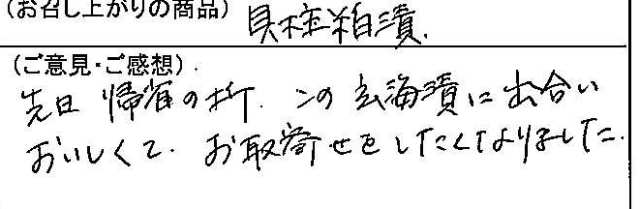 (お召し上がりの商品) 貝柱粕漬.
(ご意見・ご感想).
先日 帰省の折、この玄海漬に出合い
おいしくて、お取寄せをしたくなりました.